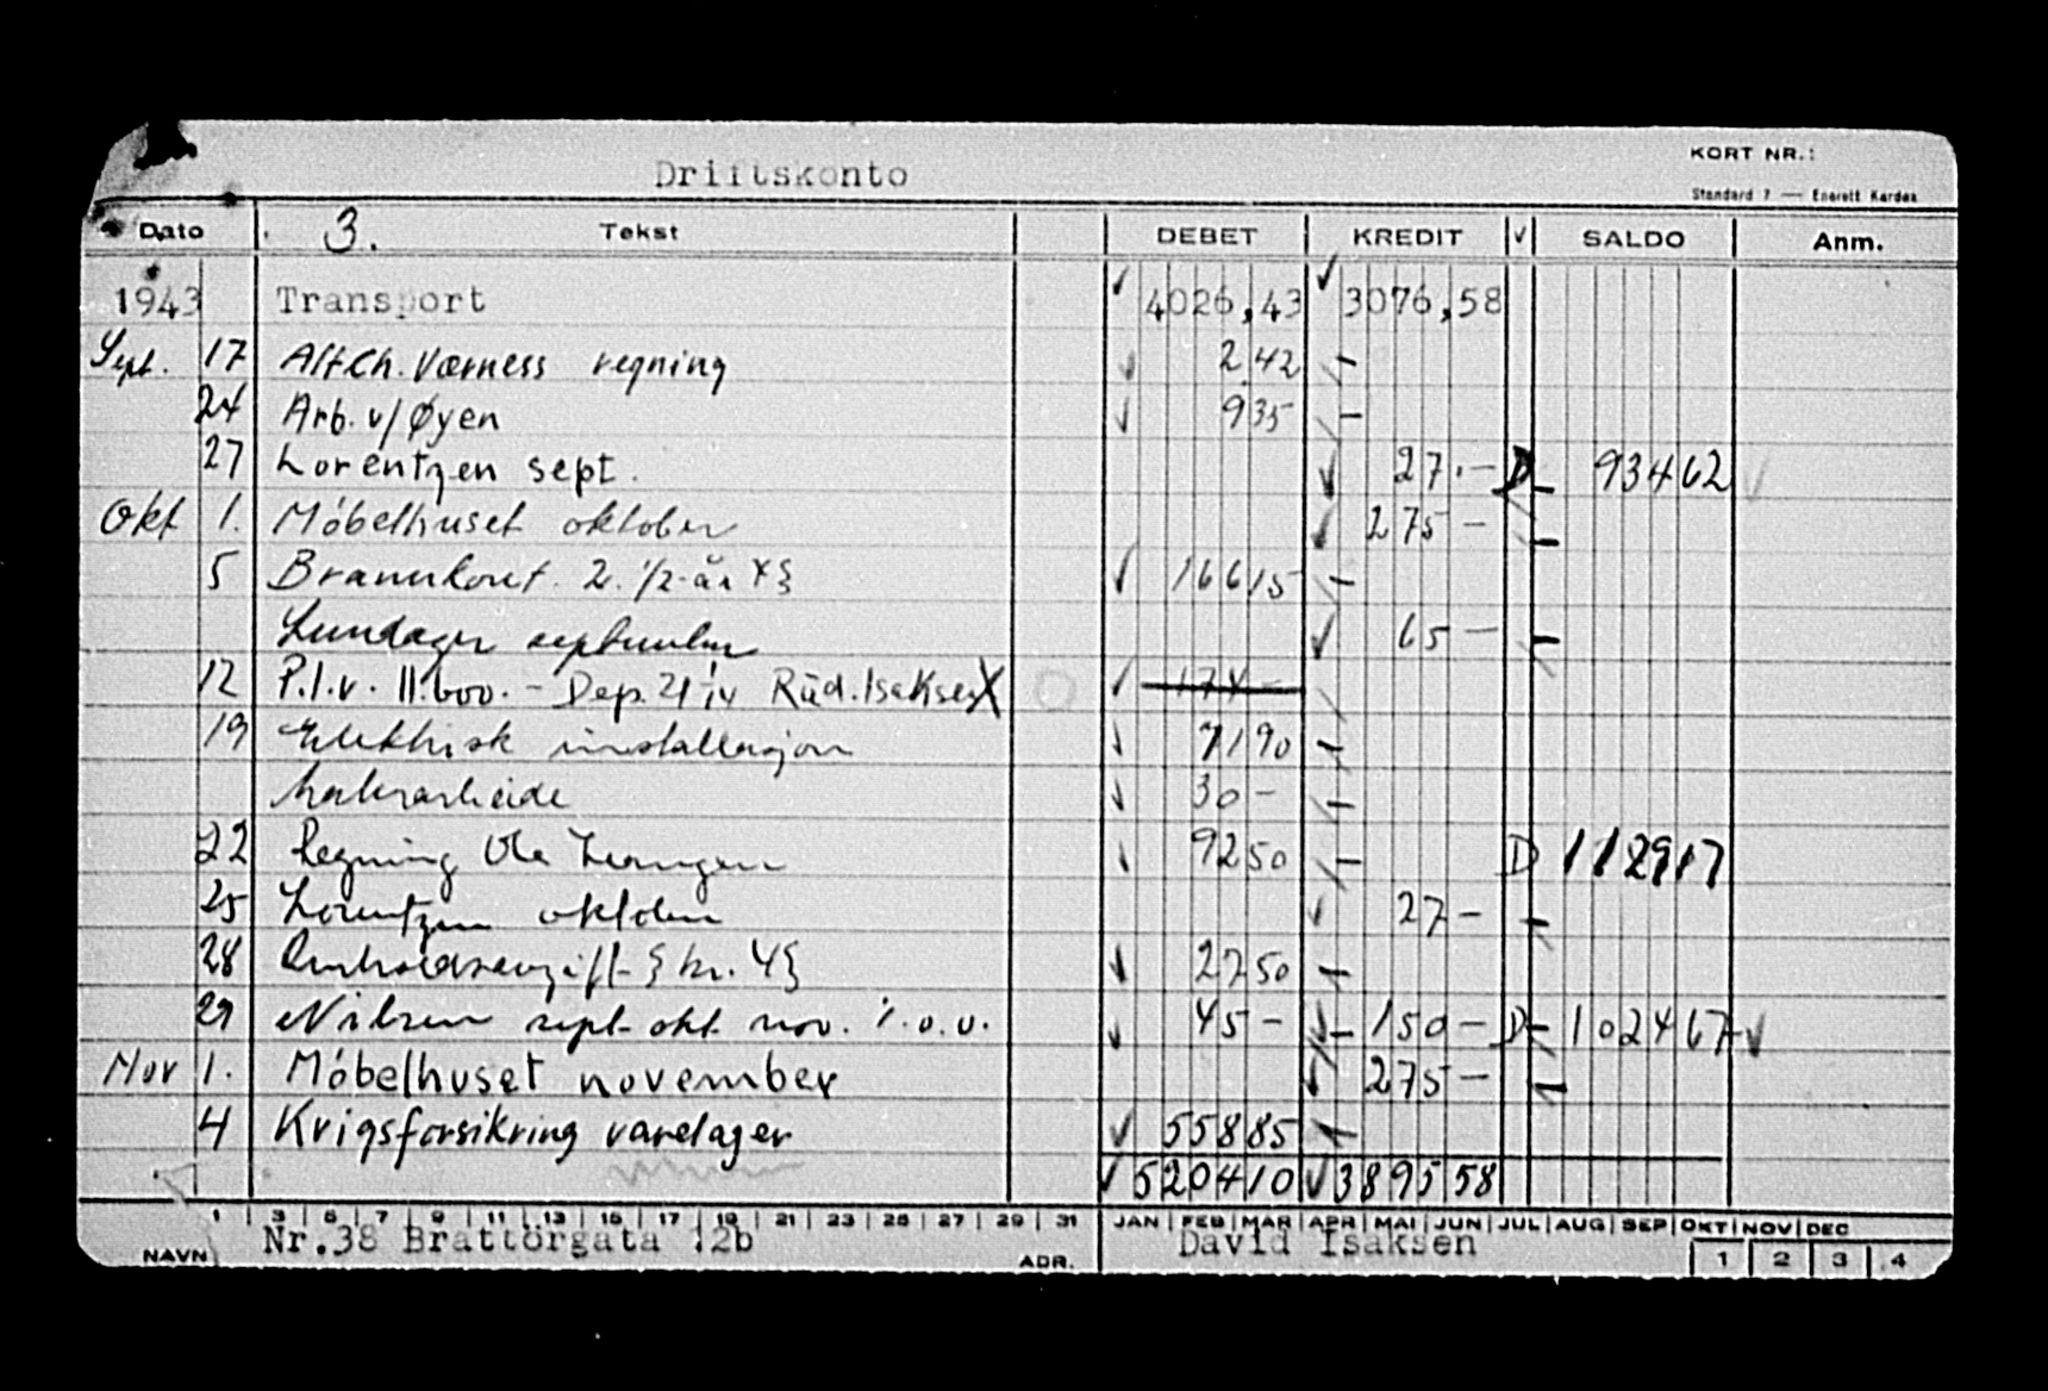 KORT NR.:
Driftskonto
Standard 7 — Enerett Kardex
Dato 3. Tekst DEBET KREDIT √ SALDO Anm.
1943 Transport 4026,43 3076,58
Sept. 17 Alf Ch. Værness regning 2 42
24 Arb. v/ Øyen 9 35
27 Lorentzen sept. 27.- D 934 62
Okt 1. Möbelhuset oktober 275 -
5 Brannkont. 2. 1/2-år 166 15
Lundager september 65 -
12 P.l.v. 11.600.- Dep. Isaksen 174 -
19 Elektrisk installasjon 71 90
Malerarbeide 30 -
22 Regning Ole 92 50 D 1129 17
25 Lorentzen oktober 27 -
28 kr. 4 27 50
29 Nilsen sept. okt. nov. 45 - 150 - D 1024 67
Nov 1. Möbelhuset november 275 -
4 Krigsforsikring varelager 558 85
5204 10 3895 58
1 3 5 7 9 11 13 15 17 19 21 23 25 27 29 31 JAN FEB MAR APR MAI JUN JUL AUG SEP OKT NOV DEC
NAVN Nr.38 Brattörgata 12b ADR. David Isaksen 1 2 3 4